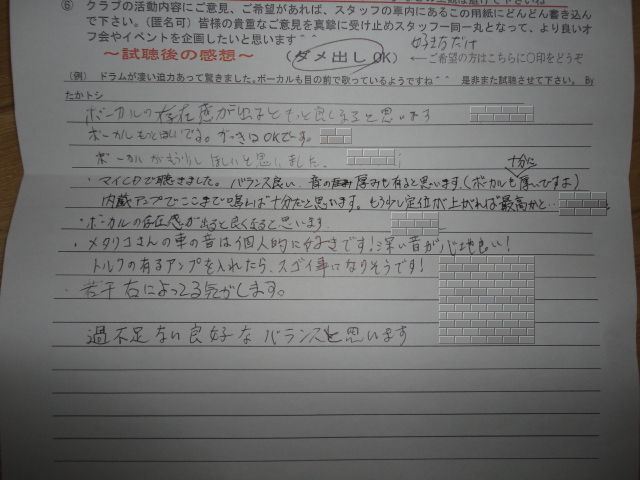 ⑥ クラブの活動内容にご意見、ご希望があれば、スタッフの車内にあるこの用紙にどんどん書き込ん
で下さい。（匿名可）皆様の貴重なご意見を真摯に受け止めスタッフ一同一丸となって、より良いオ
フ会やイベントを企画したいと思います＾＾
～試聴後の感想～
（ダメ出しOK）
好き方だけ
←ご希望の方はこちらに〇印をどうぞ
（例） ドラムが凄い迫力あって驚きました。ボーカルも目の前で歌っているようですね＾＾ 是非また試聴させて下さい。 By
たかトシ
ボーカルの存在感が出るともっと良くなると思います
ボーカルもっとほしいです。がっきはOKです。
ボーカルがもう少しほしいと思いました。
・マイCDで聴きました。バランス良い、音の厚みも有ると思います。（ボーカルも十分に厚いですよ）
内蔵アンプでここまで鳴れば十分だと思います。もう少し定位が上がれば最高かと…
・ボーカルの存在感が出ると良くなると思います
・メタリコさんの車の音は個人的に好きです！深い音が心地良い！
トルクの有るアンプを入れたら、スゴイ事になりそうです！
・若干右によってる気がします。
過不足ない良好なバランスと思います